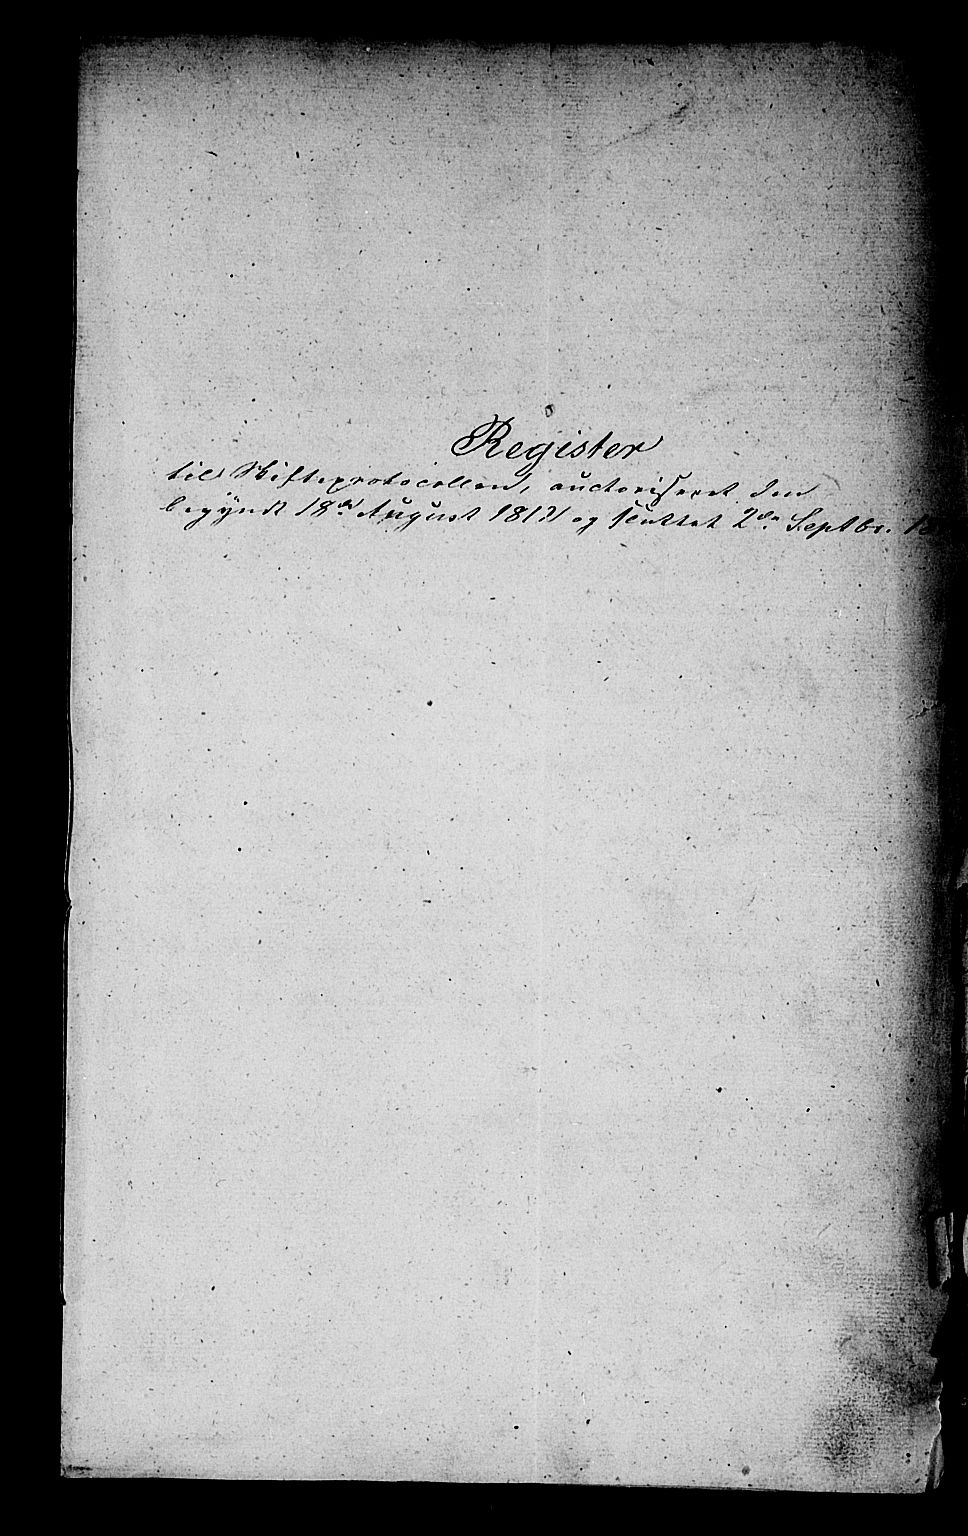 Register
til Skifteprotocollen, auctoriseret den
begyndt 18de August 181 og sluttet 2den Septbr. 18